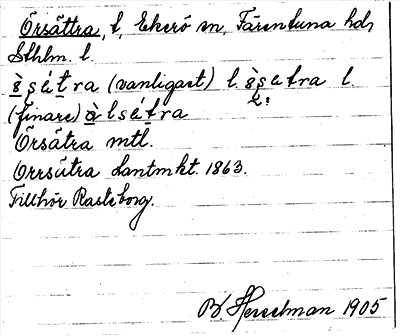 Örsättra, t, Ekerö sn, Färentuna hd,
Sthlm. l.
(vanligast) l. l.
(finare)
Örsätra mtl.
Orrsätra Lantmkt. 1863.
Tillhör Rastaborg.
Hesselman 1905